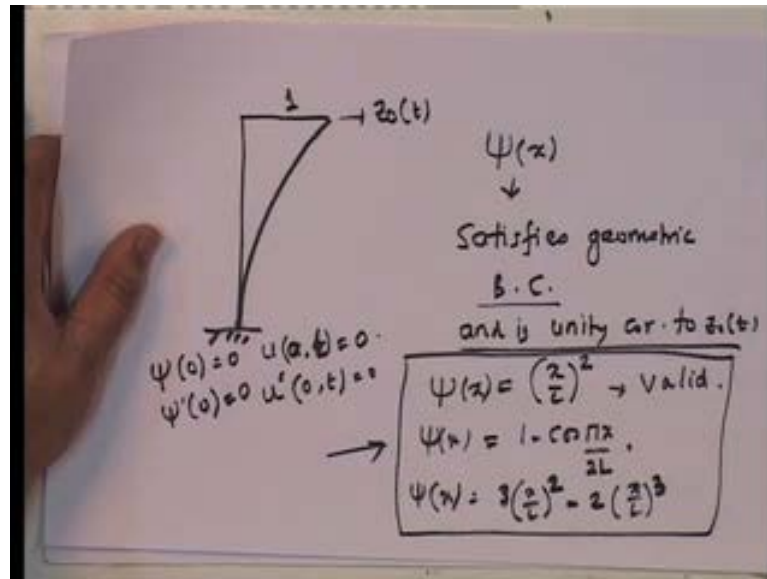 1
→ z₀(t)
ψ(x)
↓
Satisfies geometric
B.C.
and is unity cor. to z₀(t)
ψ(0)=0 u(0,t)=0.
ψ'(0)=0 u'(0,t)=0
→
ψ(x) = (x/L)² → Valid.
ψ(x) = 1 - cos πx/2L.
ψ(x) = 3(x/L)² - 2(x/L)³